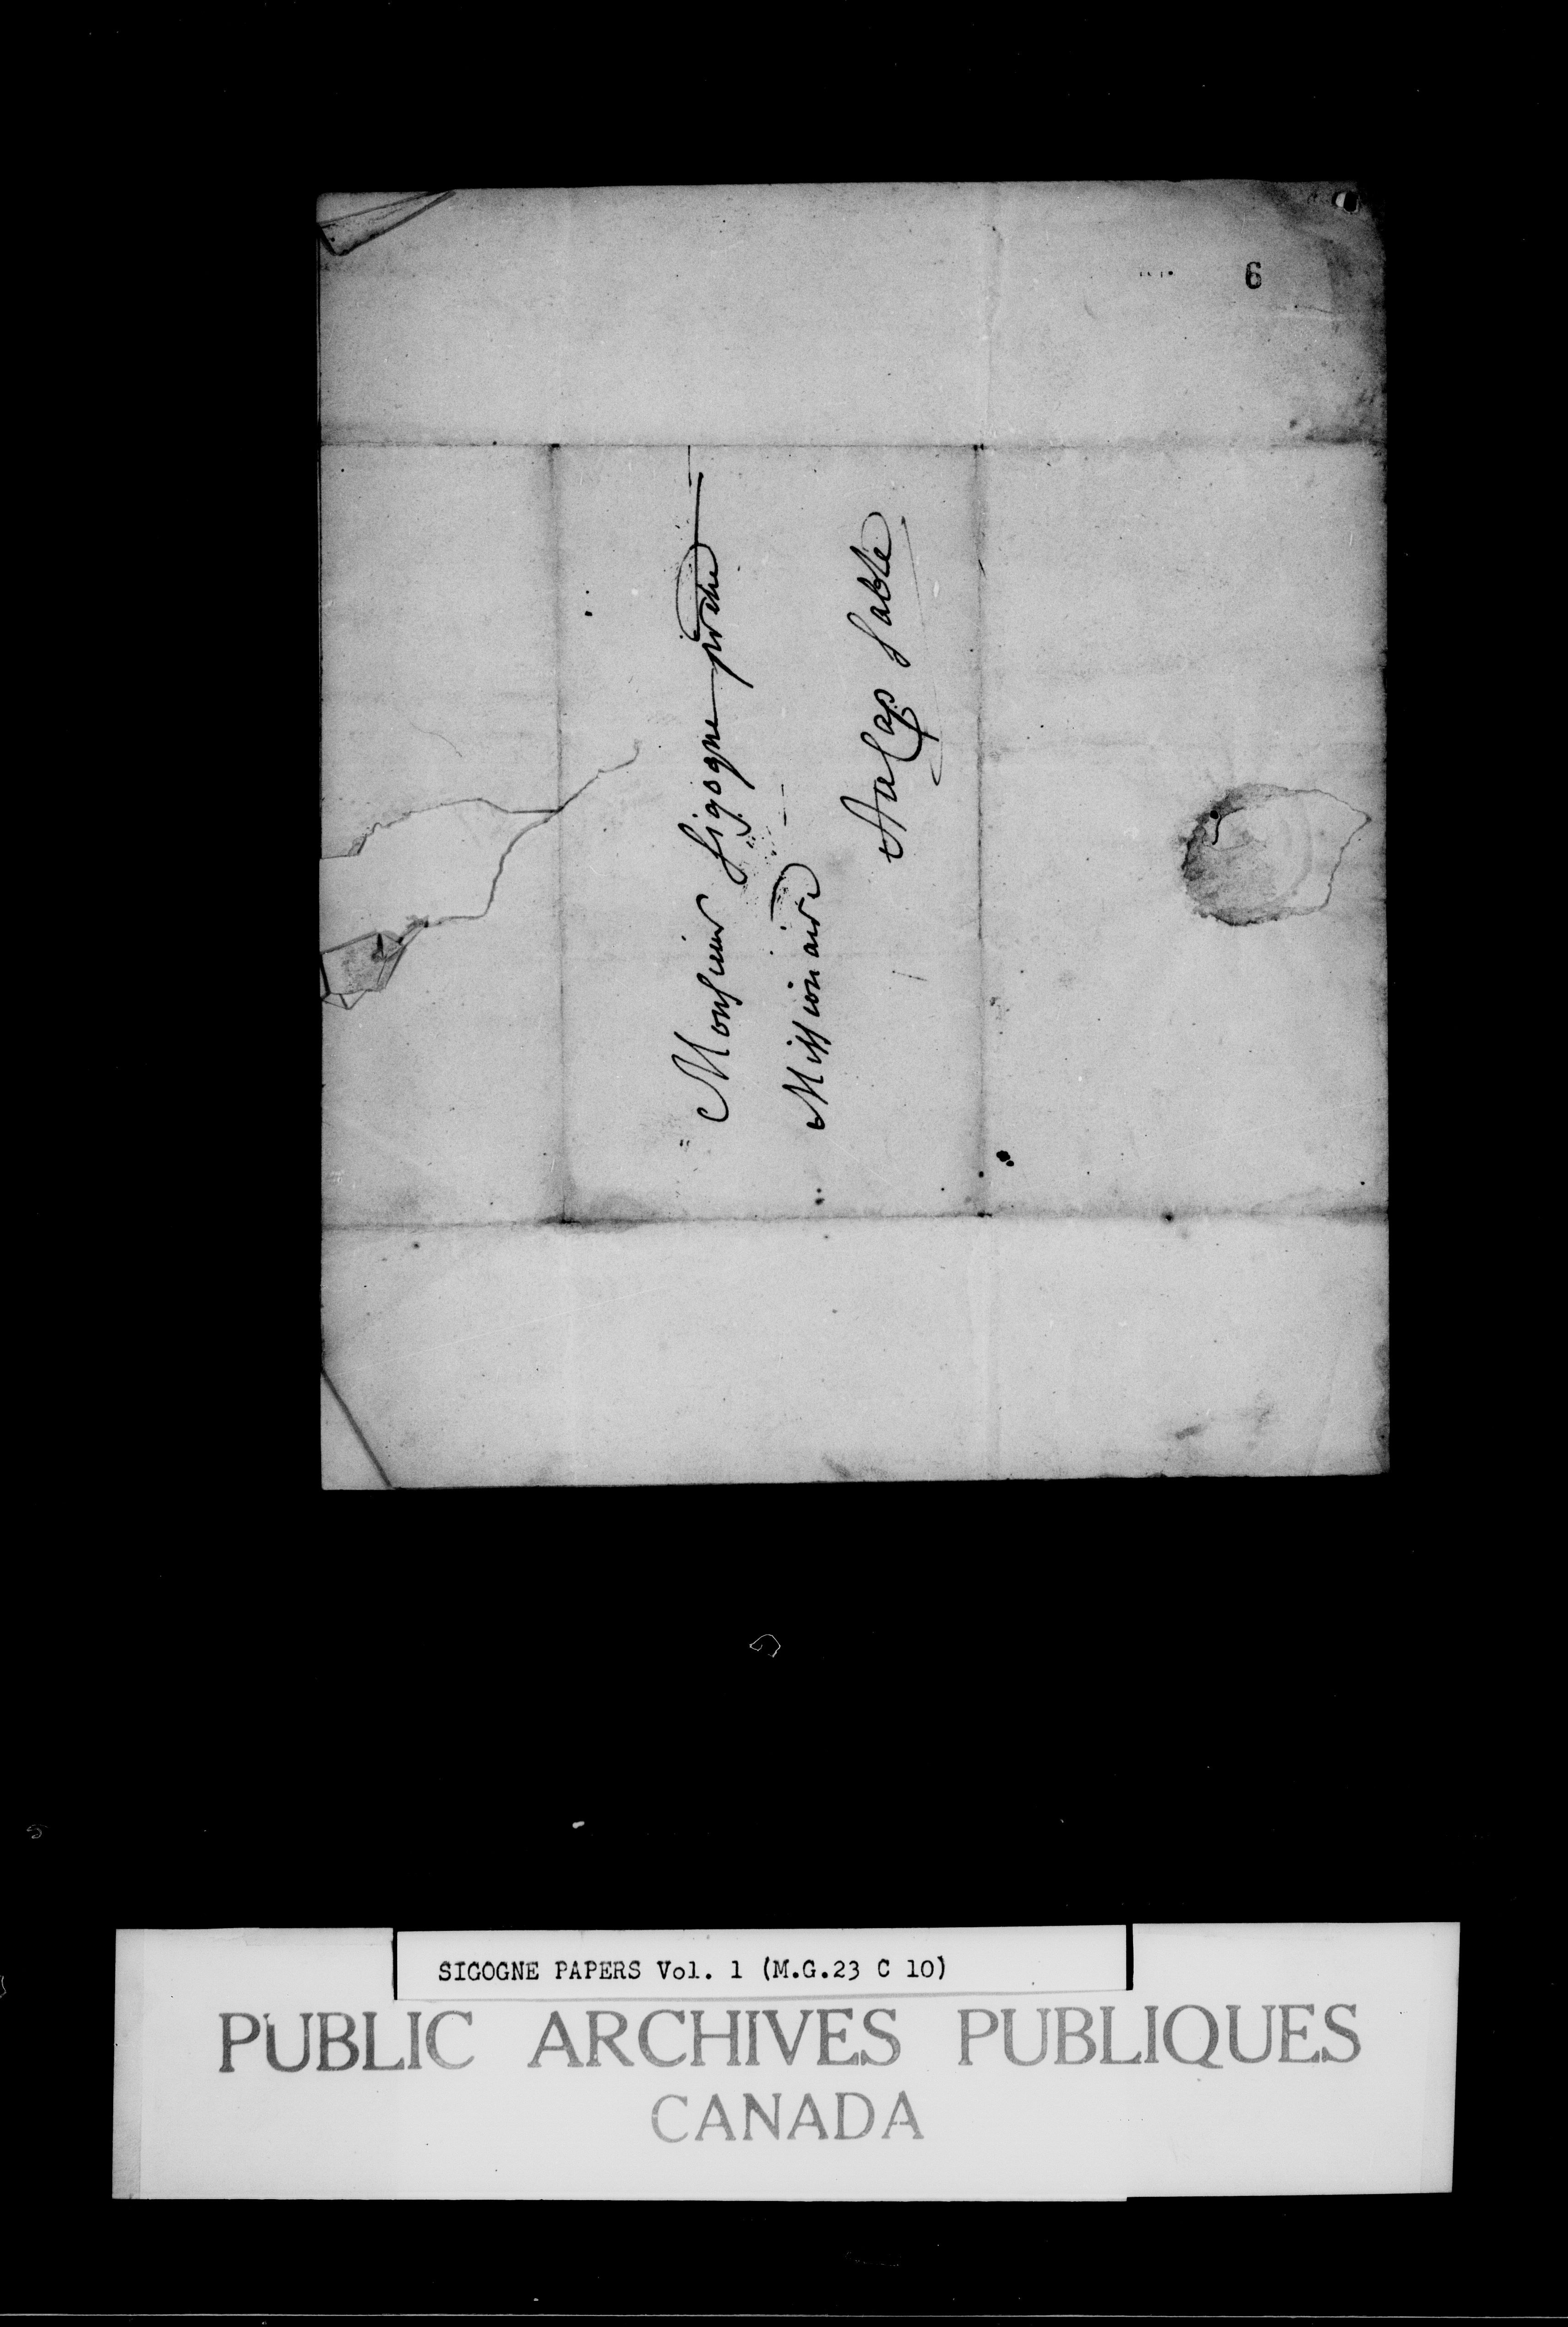 6
Monsieur Sigogne prêtre
Missionaire
Au Cap Sable
SIGOGNE PAPERS Vol. 1 (M.G.23 C 10)
PUBLIC ARCHIVES PUBLIQUES
CANADA